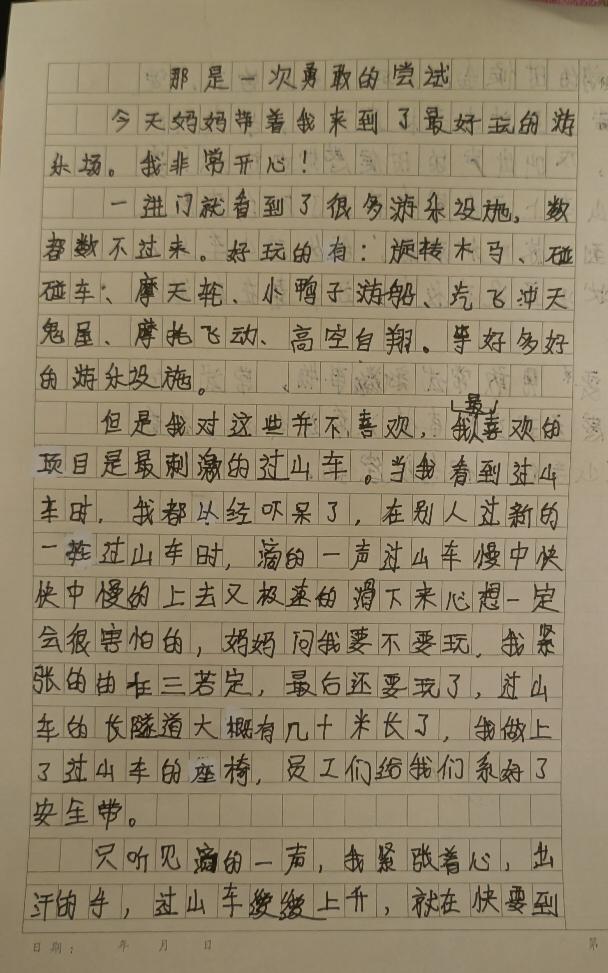 那是一次勇敢的尝试
今天妈妈带着我来到了最好玩的游
乐场。我非常开心！
一进门就看到了很多游乐设施，数
都数不过来。好玩的有：旋转木马、碰
碰车、摩天轮、小鸭子游船、汽飞冲天
鬼屋、摩托飞动、高空自翔。等好多好
的游乐设施。
但是我对这些并不喜欢，我最喜欢的
项目是最刺激的过山车。当我看到过山
车时，我都以经吓呆了，在别人过新的
一轮过山车时，滴的一声过山车慢中快
快中慢的上去又极速的滑下来心想一定
会很害怕的，妈妈问我要不要玩，我紧
张的由在三若定，最后还要玩了，过山
车的长隧道大概有几十米长了，我做上
了过山车的座椅，员工们给我们系好了
安全带。
只听见滴的一声，我紧张着心，出
汗的手，过山车缓缓上升，就在快要到
日期： 年 月 日 第